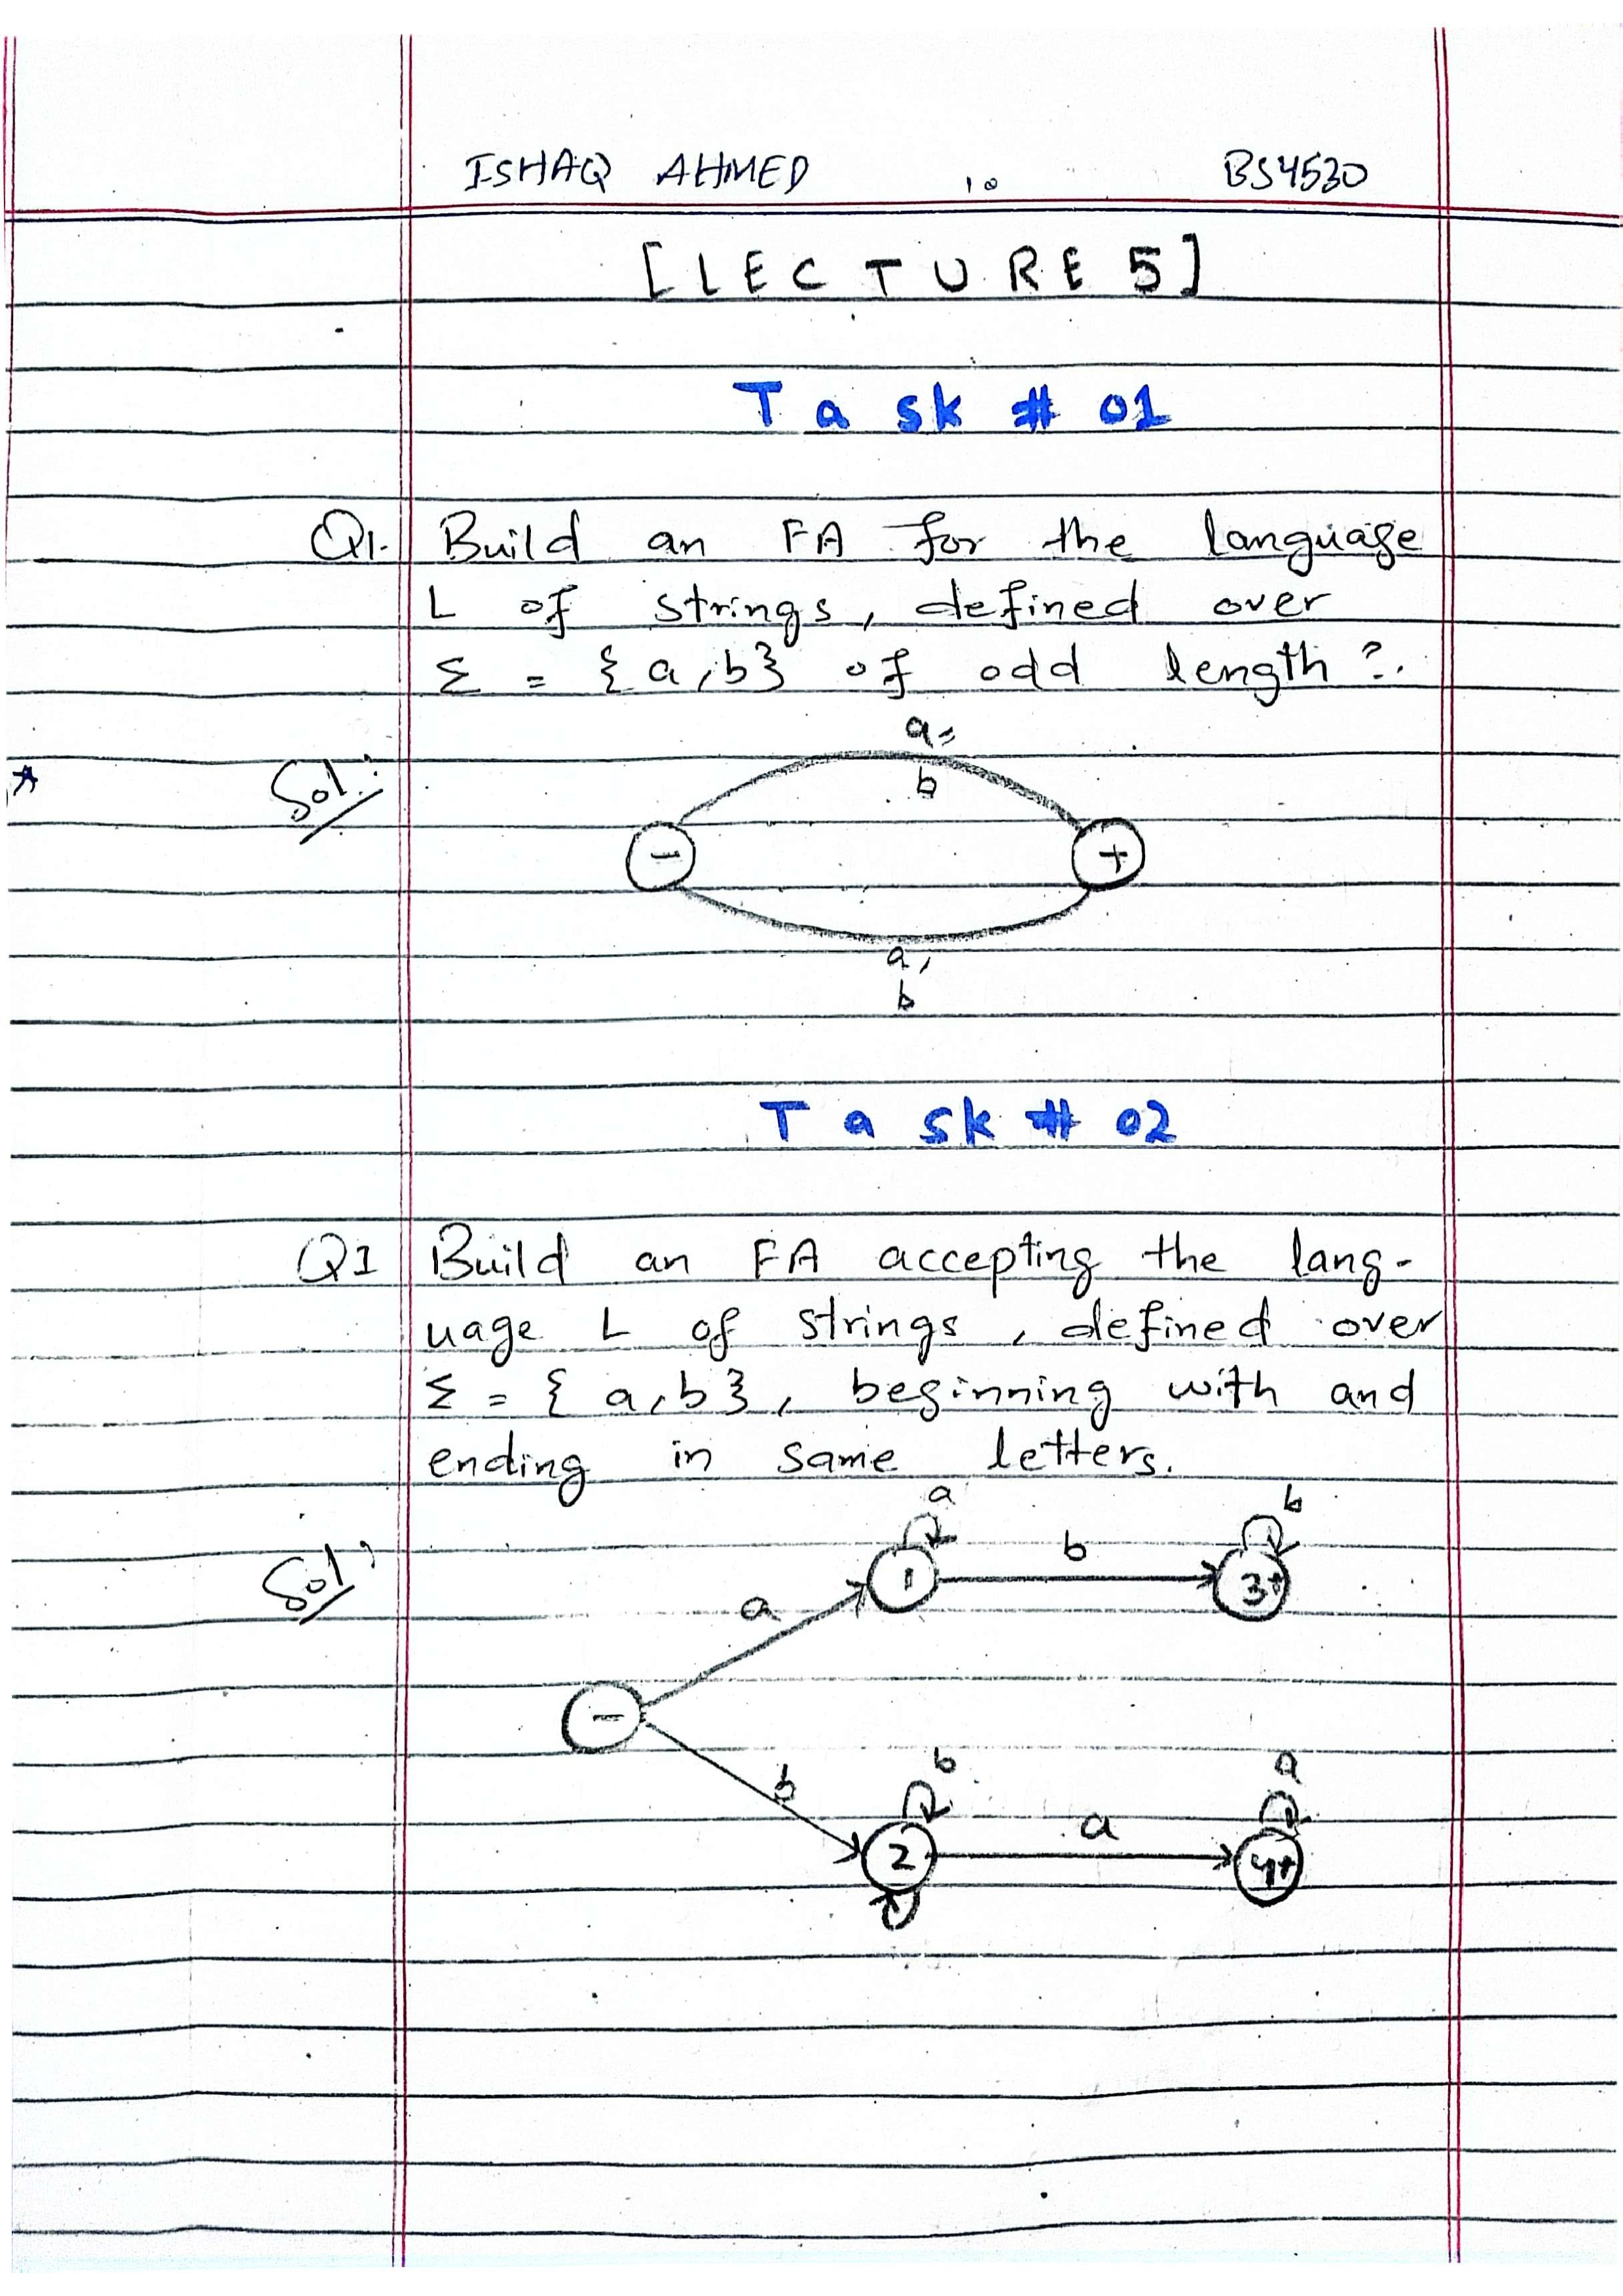 ISHAQ AHMED BS4530
[LECTURE 5]
Task # 01
Q1. Build an FA for the language
L of strings, defined over
Σ = {a,b} of odd length?.
Sol:
a,
b
- +
a,
b
Task # 02
Q1 Build an FA accepting the lang-
uage L of strings, defined over
Σ = {a,b}, beginning with and
ending in same letters.
Sol:
a b
b
1 3+
a
-
b b a
a
2 4+